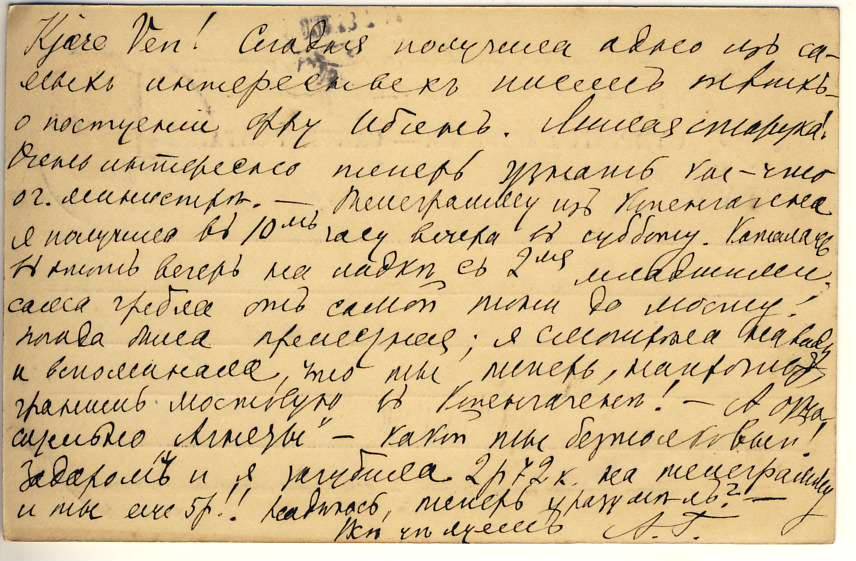 Kjære Ven! Сегодня получила одно изъ са-
мыхъ интересныхъ писемъ твоихъ-
о поступленіи фру Ибсенъ. Милая старуха!
Очень интересно теперь узнать кое-что
о г. министрѣ. — Телеграмму изъ Копенгагена
я получила въ 10мъ часу вечера въ субботу. Каталась
въ этотъ вечеръ на лодкѣ съ 2мя младшими.
сама гребла отъ самой до мосту!
погода была прелестная; я смотрѣла на воду
и вспоминала, что ты теперь,
гранишь мостовую въ Копенгагенѣ! — А
Агнезы" — какой ты безтолковый!
Задаромъ и я загубила 2р72к. на телеграмму
и ты еще 5р!! Надѣюсь, теперь уразумѣлъ? —
А. Г.